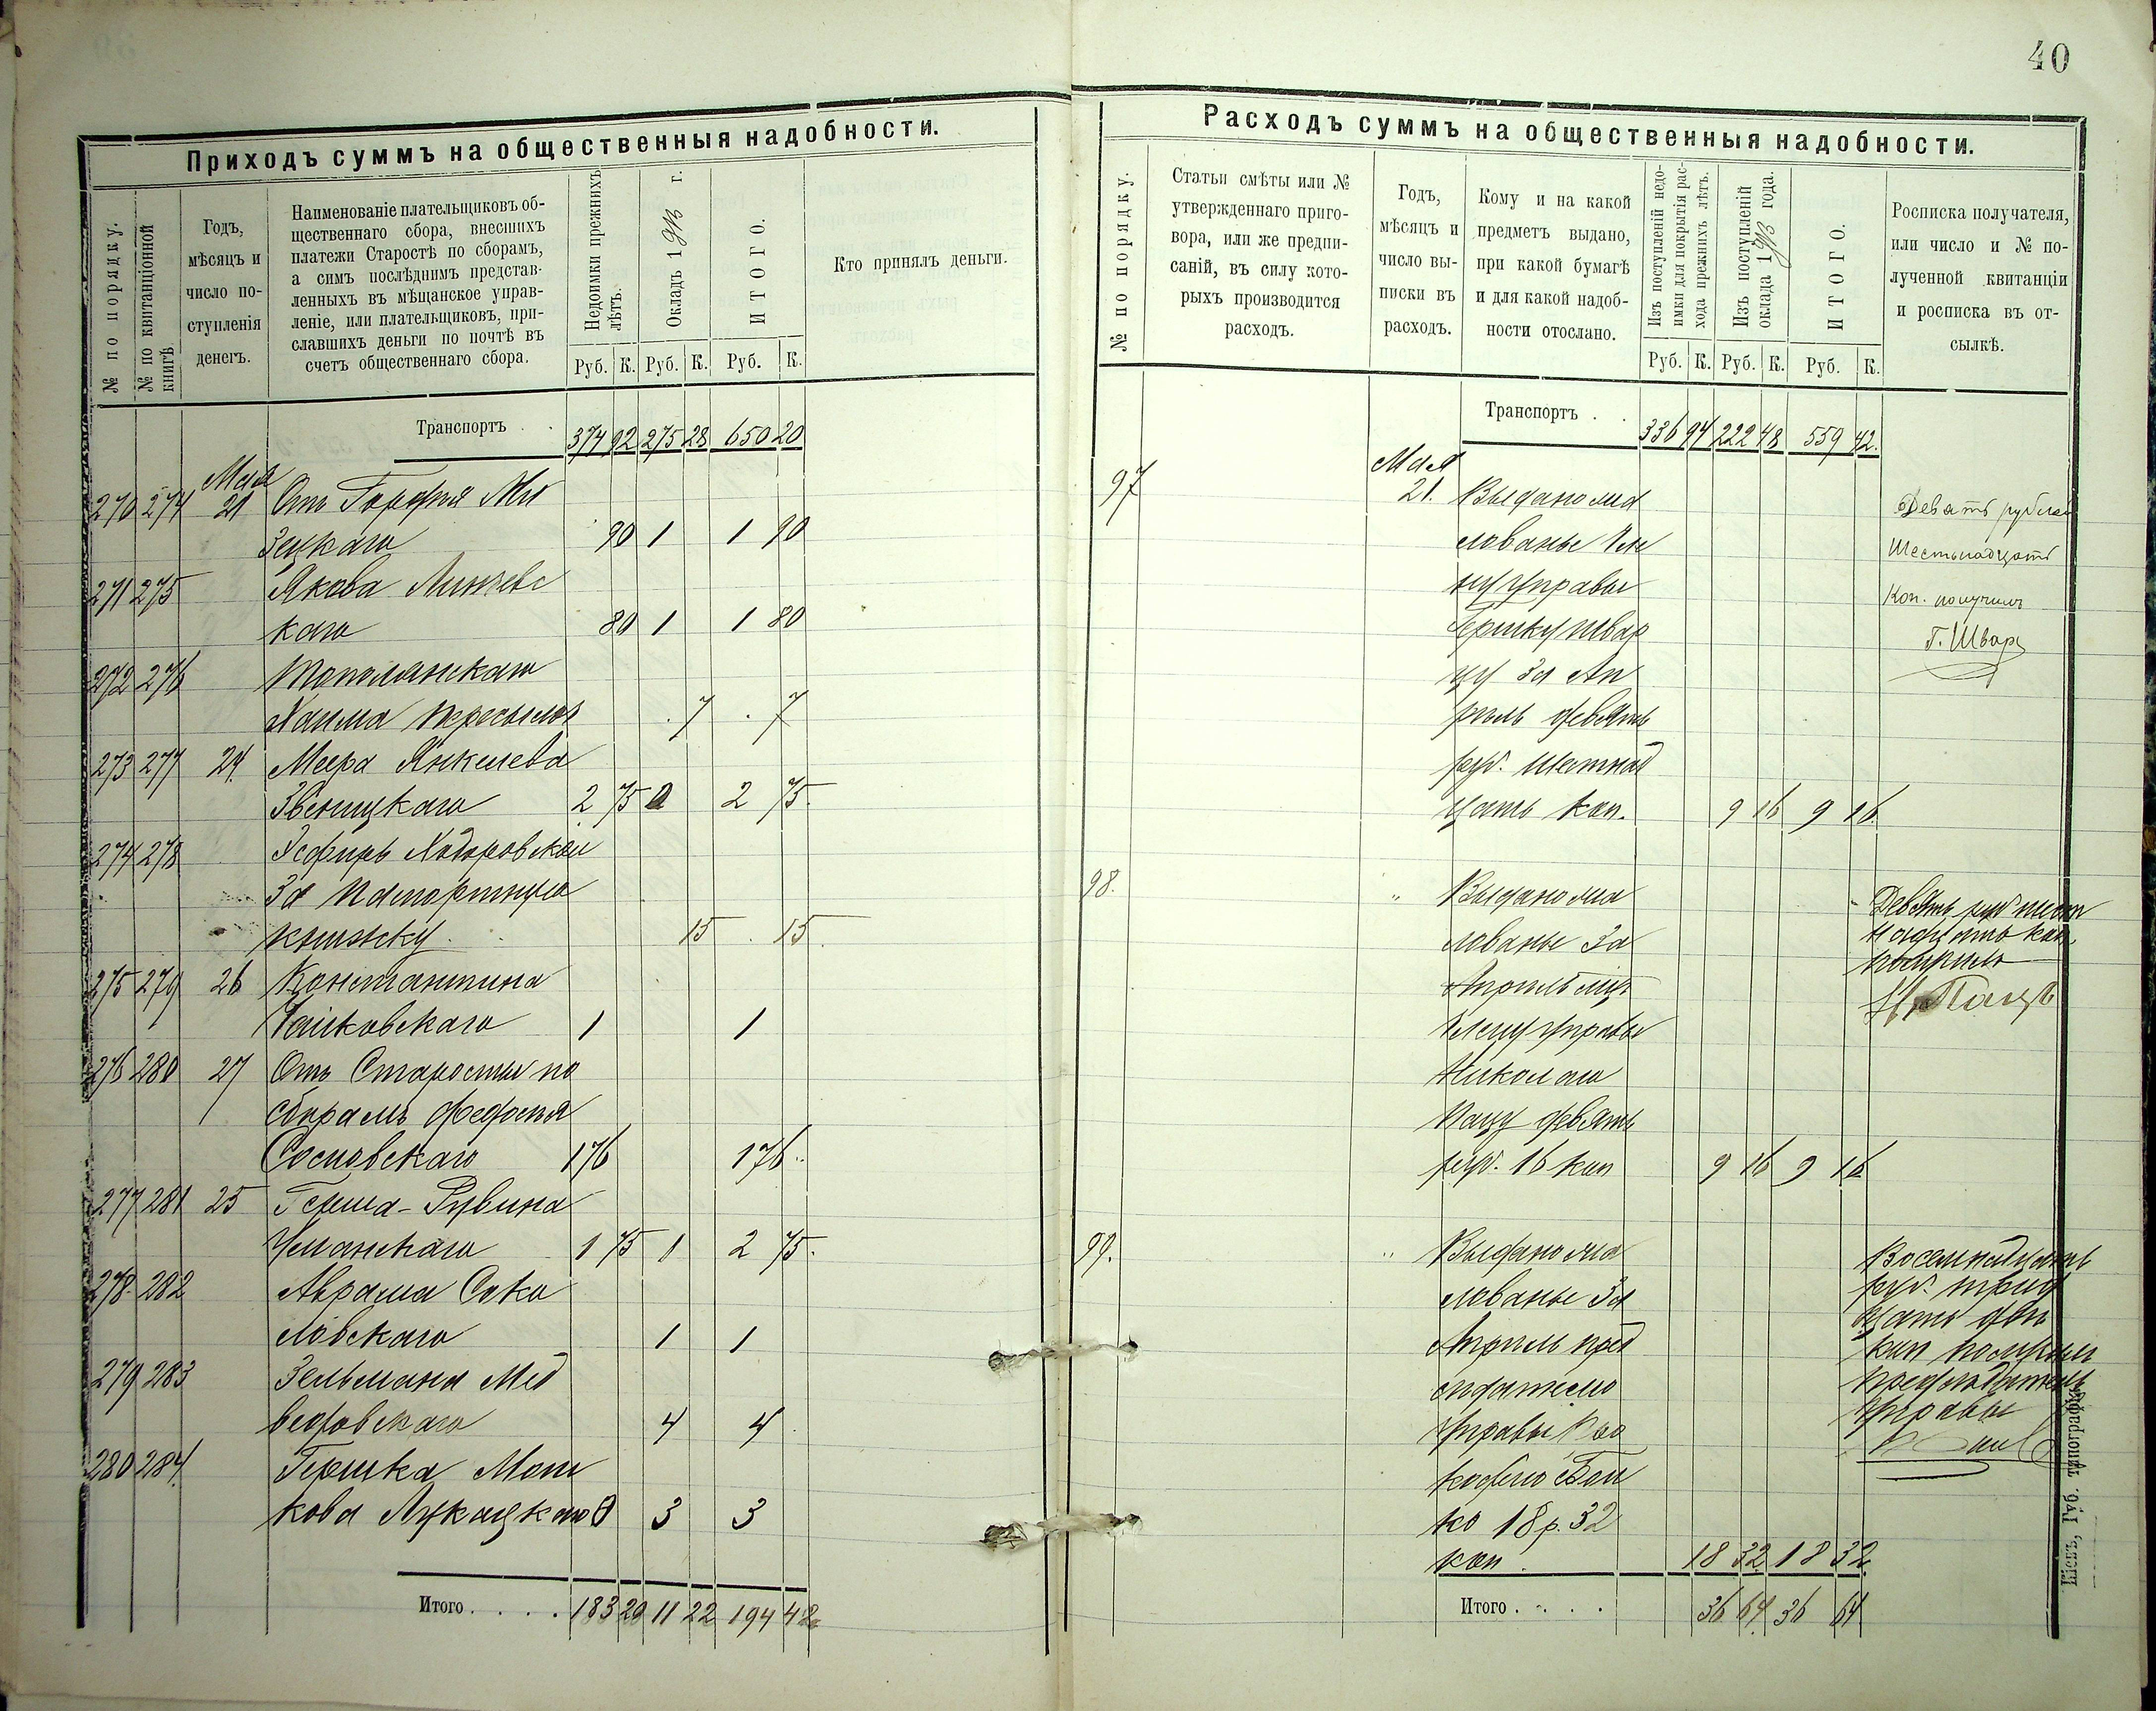 40
Приходъ суммъ на общественныя надобности.
№ по порядку.
№ по квитанціонной книгѣ.
Годъ,
мѣсяцъ и
число по-
ступленія
денегъ.
Наименованіе плательщиковъ об-
щественнаго сбора, внесшихъ
платежи Старостѣ по сборамъ,
а симъ послѣднимъ представ-
ленныхъ въ мѣщанское управ-
леніе, или плательщиковъ, при-
славшихъ деньги по почтѣ въ
счетъ общественнаго сбора.
Недоимки прежнихъ
лѣтъ.
Окладъ 1913 г.
ИТОГО.
Кто принялъ деньги.
Руб. К. Руб. К. Руб. К.
Транспортъ . . 374 92 275 28 650 20
Мая
270 274 21 Отъ
зецкаго 90 1 1 90
271 275 Якова
каго 80 1 1 80
272 276 Тополянскаго
Хаима пересылоч 7 . 7
273 277 24 Меера Янкелева
Звеницкаго 2 75 2 75.
274 278 Эсфирь Ходоровской
За паспортную
книжку. 15 . 15.
275 279 26 Константина
Чайковскаго 1 1
276 280 27 Отъ Старосты по
сборамъ Федосія
Сосновскаго 176 176..
277 281 25 Герша-Рувина
Уманскаго 1 75 1 2 75.
278. 282 Аврама Соко
ловскаго 1 1
279 283 Зельмана Мед
ведовскаго 4 4
280 284. Гершка Мош
кова Лукацкаго 3 3
Итого . . . . 183 20 11 22 194 42
Расходъ суммъ на общественныя надобности.
№ по порядку.
Статьи смѣты или №
утвержденнаго приго-
вора, или же предпи-
саній, въ силу кото-
рыхъ производится
расходъ.
Годъ,
мѣсяцъ и
число вы-
писки въ
расходъ.
Кому и на какой
предметъ выдано,
при какой бумагѣ
и для какой надоб-
ности отослано.
Изъ поступленій недо-
имки для покрытія рас-
хода прежнихъ лѣтъ.
Изъ поступленій
оклада 1913 года.
ИТОГО.
Росписка получателя,
или число и № по-
лученной квитанціи
и росписка въ от-
сылкѣ.
Руб. К. Руб. К. Руб. К.
Транспортъ . . 336 94 222 48 559 42.
Мая
97 21. Выдано жа
лованье Чле
ну Управы
Гершку Швар
цу за Ап
рѣль девять
руб. шестнад
цать коп. 9 16 9 16
Девять рублей
Шестьнадцать
Коп. получилъ
Г. Шварц
98. " Выдано жа
лованье За
Апрѣль мѣс
Члену Управы
Николаю
Пацу девять
руб. 16 коп 9 16 9 16
Девять руб шест
надцать коп.
получилъ
Н. Пацъ
99. " Выдано жа
лованье За
Апрѣль пред
сѣдателю
Управы
Бой
ко 18 р. 32
коп. 18 32 18 32.
Восемнадцать
руб. трид
цать двѣ
коп получилъ
предсѣдатель
Управы
Итого . . . . 36 64. 36 64.
Кіевъ, Губ. типографія.